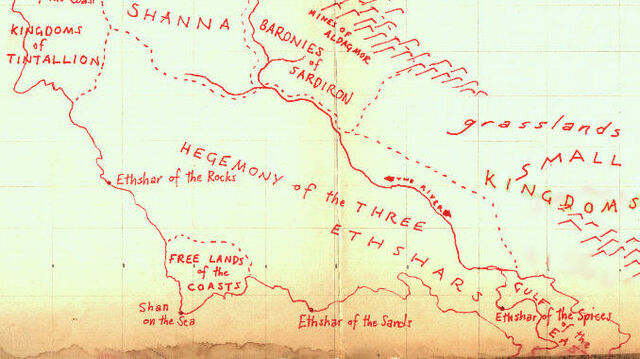 of the Coast
SHANNA
KINGDOMS
of
TINTALLION
BARONIES
of
SARDIRON
MINES OF
ALDAGMOR
grasslands
SMALL
KINGDOMS
HEGEMONY of the THREE
ETHSHARS
Ethshar of the Rocks
FREE LANDS
of the
COASTS
Shan
on the Sea
Ethshar of the Sands
Ethshar of the Spices
GULF
of the